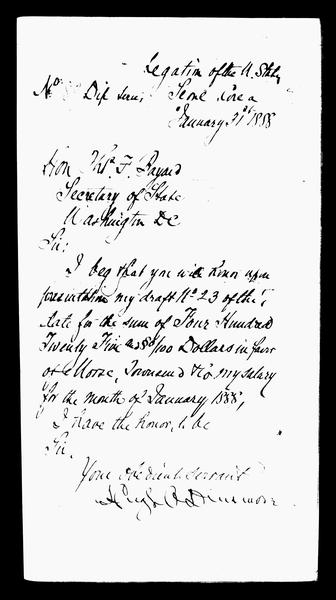 Legation of the U. States
No. Dip. series, Seoul Korea
January 31st 1888
Hon Ths. F. Bayard
Secretary of State
Washington DC
Sir:
I beg that you will honor upon
presentation my draft No 23 of this
date for the sum of Four Hundred
Twenty Five and /100 Dollars in favor
of Morse, Townsend & Co my salary
for the month of January 1888,
I have the honor, to be
Sir,
Your obedient servant
Hugh A Dinsmore